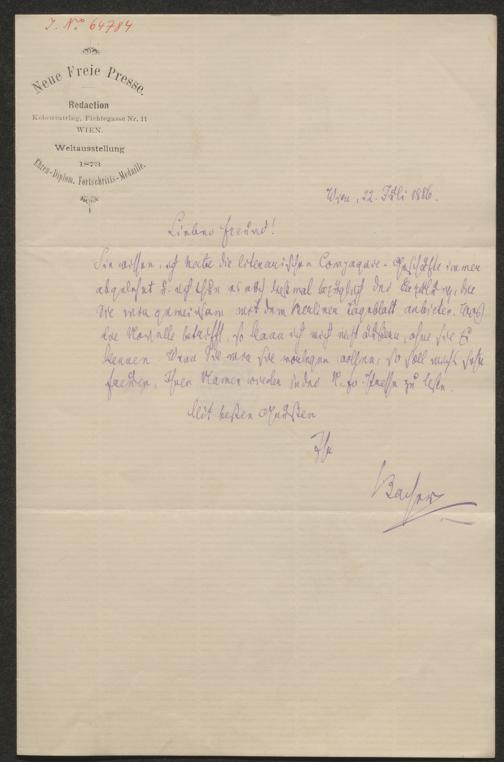 J. No 64784
Neue Freie Presse.
Redaction
Kolowratring, Fichtegasse Nr. 11
WIEN.
Weltausstellung
1873
Ehren-Diplom. Fortschritts-Medaille.
Wien, 22. Juli 1886.
Lieber Freund!
Sie wissen, ich habe die literarischen Compagnie-Geschäfte immer
abgelehnt & auch diesmal bezüglich der Erzählung, die
Sie mir gemeinsam mit dem Berliner Tageblatt anbieten. Was
die Novelle betrifft, so kann ich mich nicht äußern, ohne sie zu
kennen. Wenn Sie mir sie vorlegen wollen, so soll mich sehr
freuen, Ihren Namen wieder in der N. fr. Presse zu lesen.
Mit besten Grüßen
Ihr
Bacher